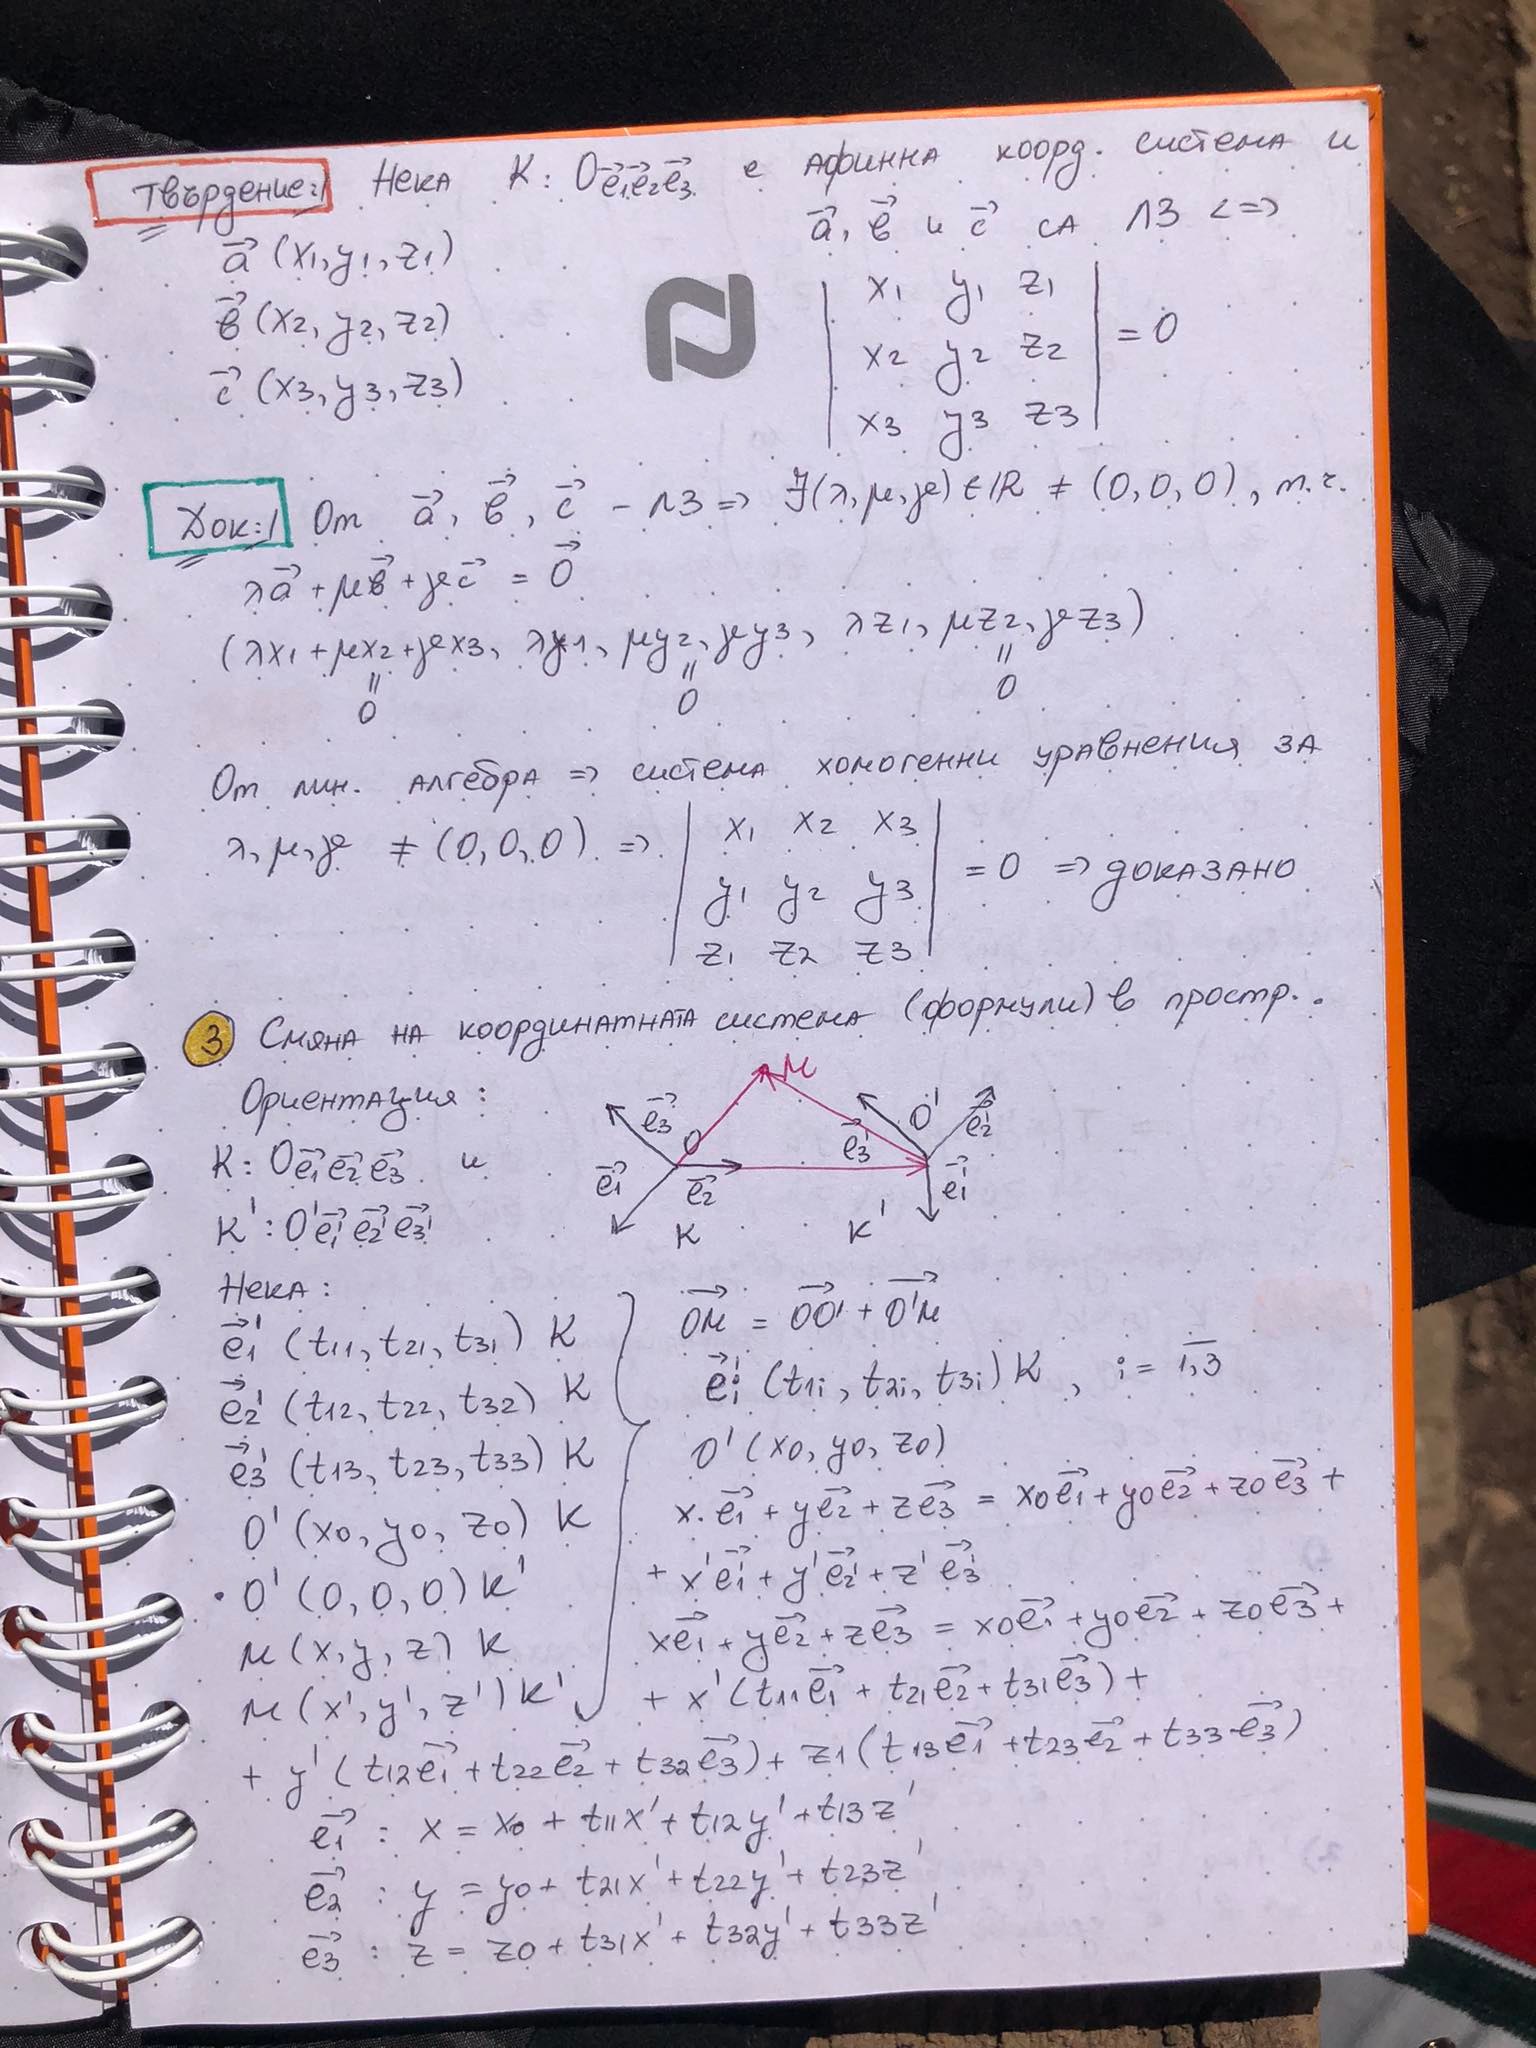 Твърдение:/ Нека K: O e⃗1 e⃗2 e⃗3 е афинна коорд. система и
a⃗ (x1, y1, z1)
b⃗ (x2, y2, z2)
c⃗ (x3, y3, z3)
a⃗, b⃗ и c⃗ са ЛЗ <=>
| x1 y1 z1 |
| x2 y2 z2 | = 0
| x3 y3 z3 |
Док:/ От a⃗, b⃗, c⃗ - ЛЗ => ∃(λ, μ, γ) ∈ ℝ ≠ (0, 0, 0), т.ч.
λa⃗ + μb⃗ + γc⃗ = 0⃗
(λx1 + μx2 + γx3, λy1, μy2, γy3, λz1, μz2, γz3)
= 0 = 0 = 0
От лин. алгебра => система хомогенни уравнения за
λ, μ, γ ≠ (0, 0, 0) =>
| x1 x2 x3 |
| y1 y2 y3 | = 0 => доказано
| z1 z2 z3 |
3 Смяна на координатната система (формули) в простр.
Ориентация:
K: O e⃗1 e⃗2 e⃗3 и
K': O' e⃗1' e⃗2' e⃗3'
M
e⃗3 O e⃗1 e⃗2 K
O' e⃗2' e⃗3' e⃗1' K'
Нека:
e⃗1' (t11, t21, t31) K
e⃗2' (t12, t22, t32) K
e⃗3' (t13, t23, t33) K
O' (x0, y0, z0) K
O' (0, 0, 0) K'
M (x, y, z) K
M (x', y', z') K'
OM⃗ = OO'⃗ + O'M⃗
e⃗i' (t1i, t2i, t3i) K, i = 1,3
O' (x0, y0, z0)
x.e⃗1 + ye⃗2 + ze⃗3 = x0e⃗1 + y0e⃗2 + z0e⃗3 +
+ x'e⃗1' + y'e⃗2' + z'e⃗3'
xe⃗1 + ye⃗2 + ze⃗3 = x0e⃗1 + y0e⃗2 + z0e⃗3 +
+ x'(t11e⃗1 + t21e⃗2 + t31e⃗3) +
+ y'(t12e⃗1 + t22e⃗2 + t32e⃗3) + z1(t13e⃗1 + t23e⃗2 + t33e⃗3)
e⃗1 : x = x0 + t11x' + t12y' + t13z'
e⃗2 : y = y0 + t21x' + t22y' + t23z'
e⃗3 : z = z0 + t31x' + t32y' + t33z'